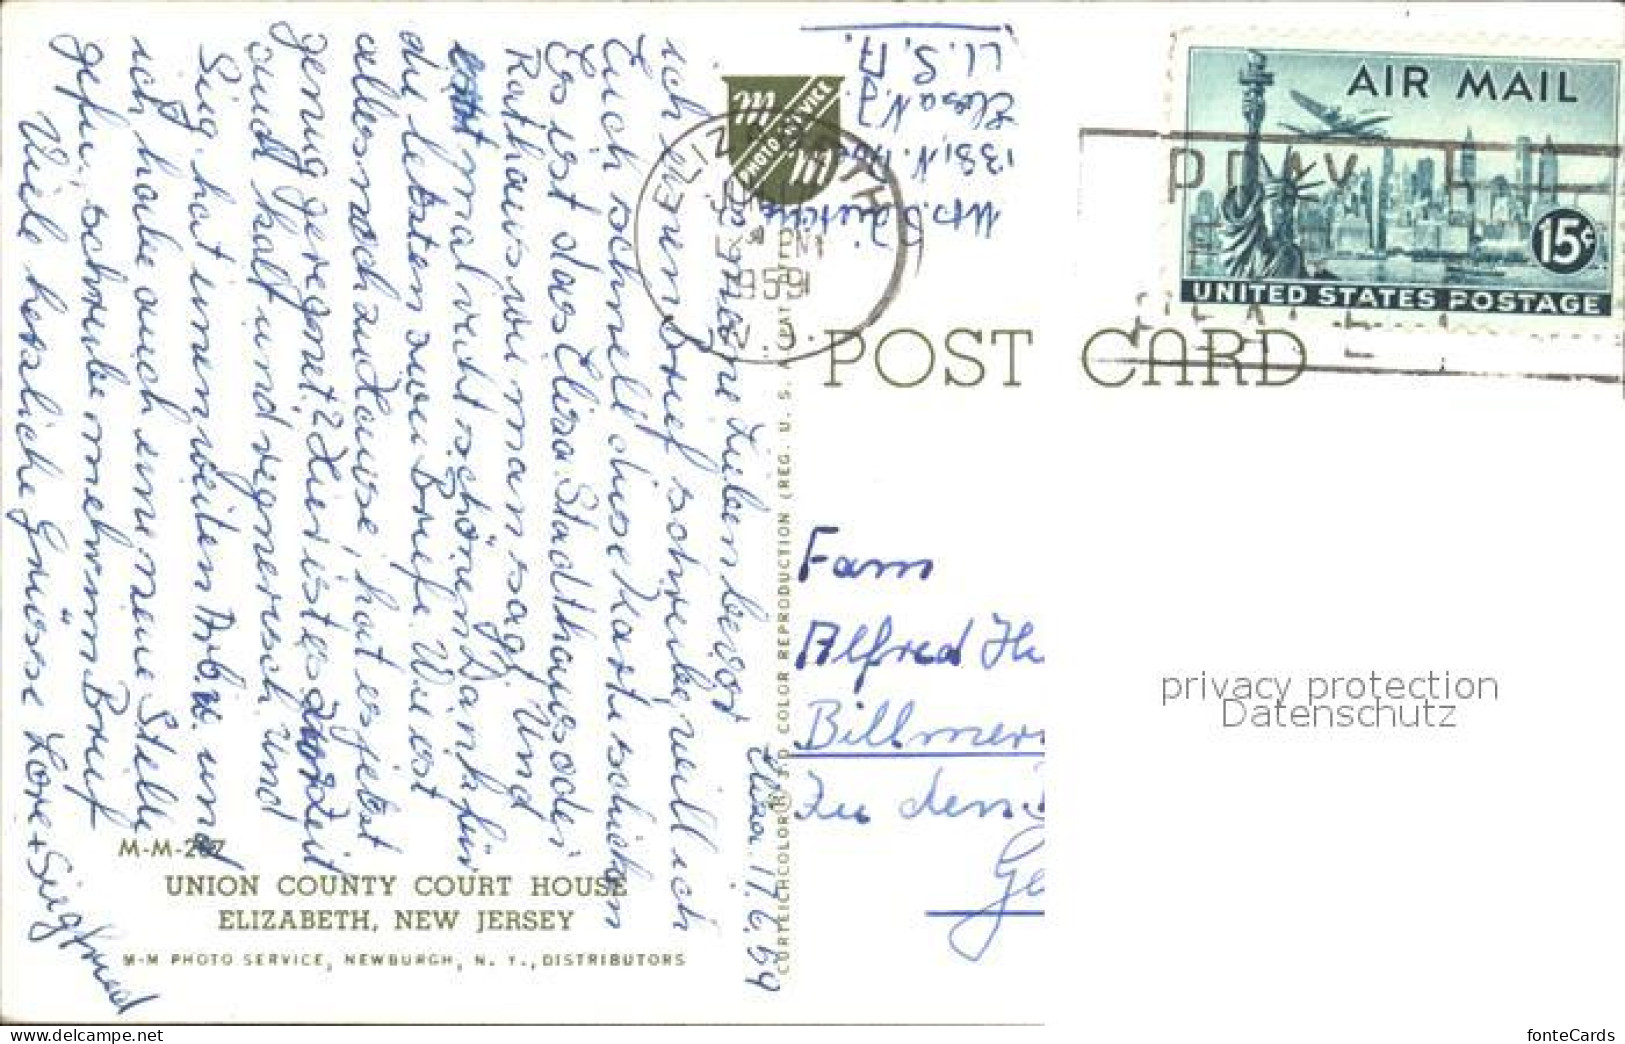 Elisa 17.6.59
Meine Lieben bevor
ich einen Brief schreibe, will ich
Euch schnell diese Karte schicken
Es ist das Elisa. Stadthaus oder
Rathaus wie man sagt. Und
mal recht schönen Dank für
die letzten zwei Briefe. Wie ist
alles noch zu Hause, hat es jetzt
genug geregnet? Hier ist es zur Zeit
auch kalt und regnerisch. Und
Sieg. hat immer weiten Arb.w. und
ich habe auch eine neue Stelle
gefu. schreibe mehr im Brief
Viele herzliche Grüsse Lore + Siegfried
M-M-267
UNION COUNTY COURT HOUSE
ELIZABETH, NEW JERSEY
M-M PHOTO SERVICE, NEWBURGH, N. Y., DISTRIBUTORS
CURTEICHCOLOR ® 3-D COLOR REPRODUCTION (REG. U. S. A. PAT.
m PHOTO SERVICE m
Mrs.
138, N.
Elisa N.J.
U.S.A.
ELIZABETH
PM
1959
N.J.
POST CARD
AIR MAIL
15¢
UNITED STATES POSTAGE
PRAY
Fam
Alfred
Billmer
Zu den
Ge
privacy protection
Datenschutz
fonteCards